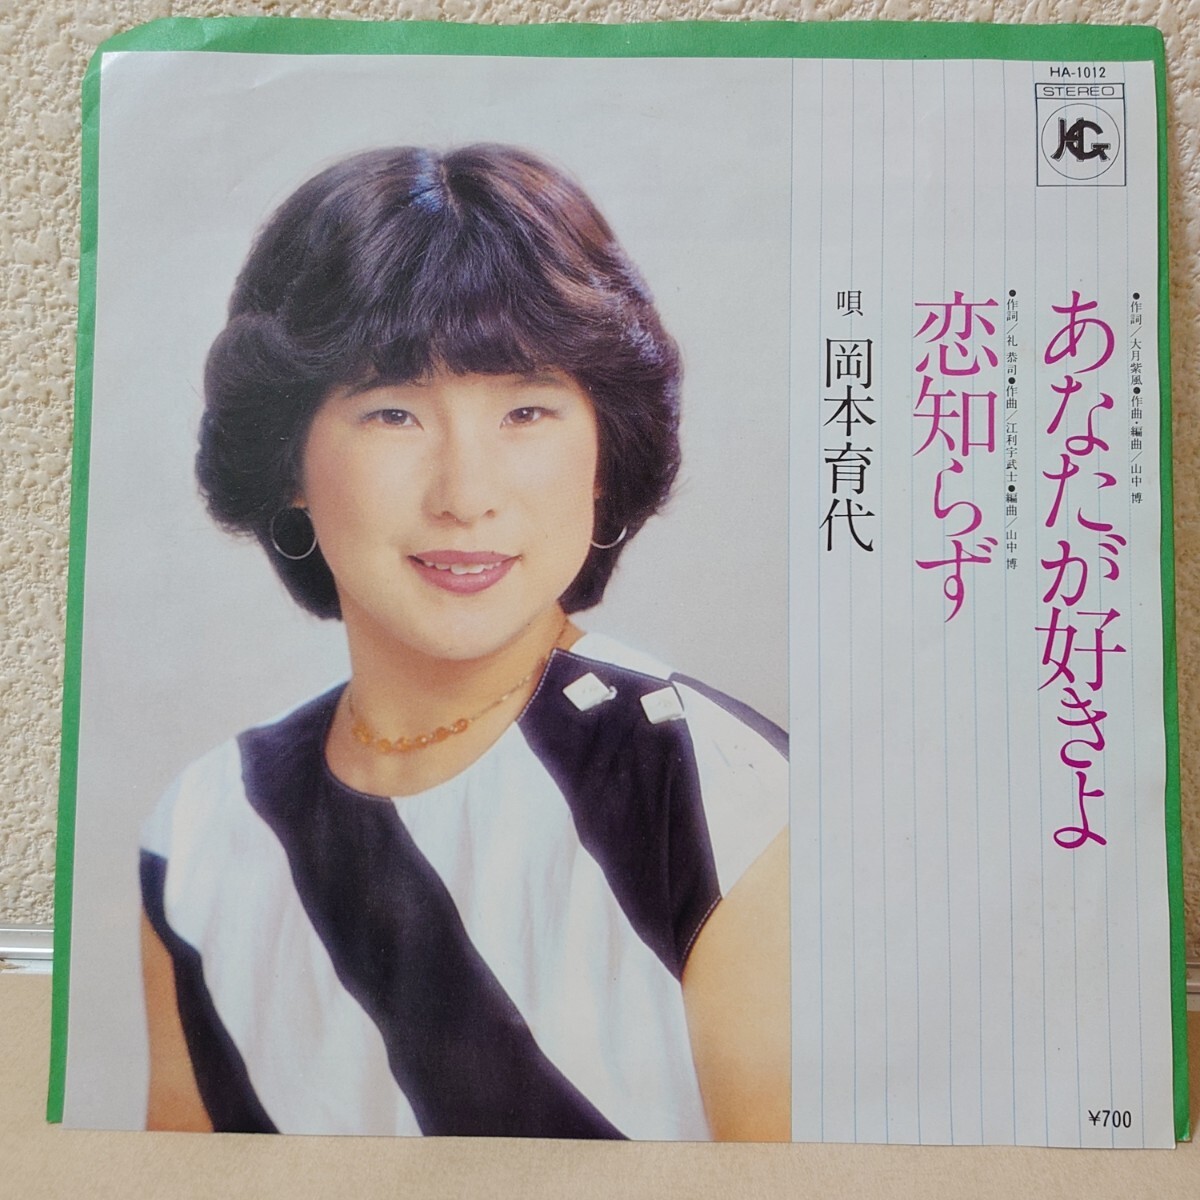 HA-1012
STEREO
KG
●作詞／大月紫風●作曲・編曲／山中 博
あなたが好きよ
●作詞／礼 恭司●作曲／江利宇武士●編曲／山中 博
恋知らず
唄 岡本育代
¥700